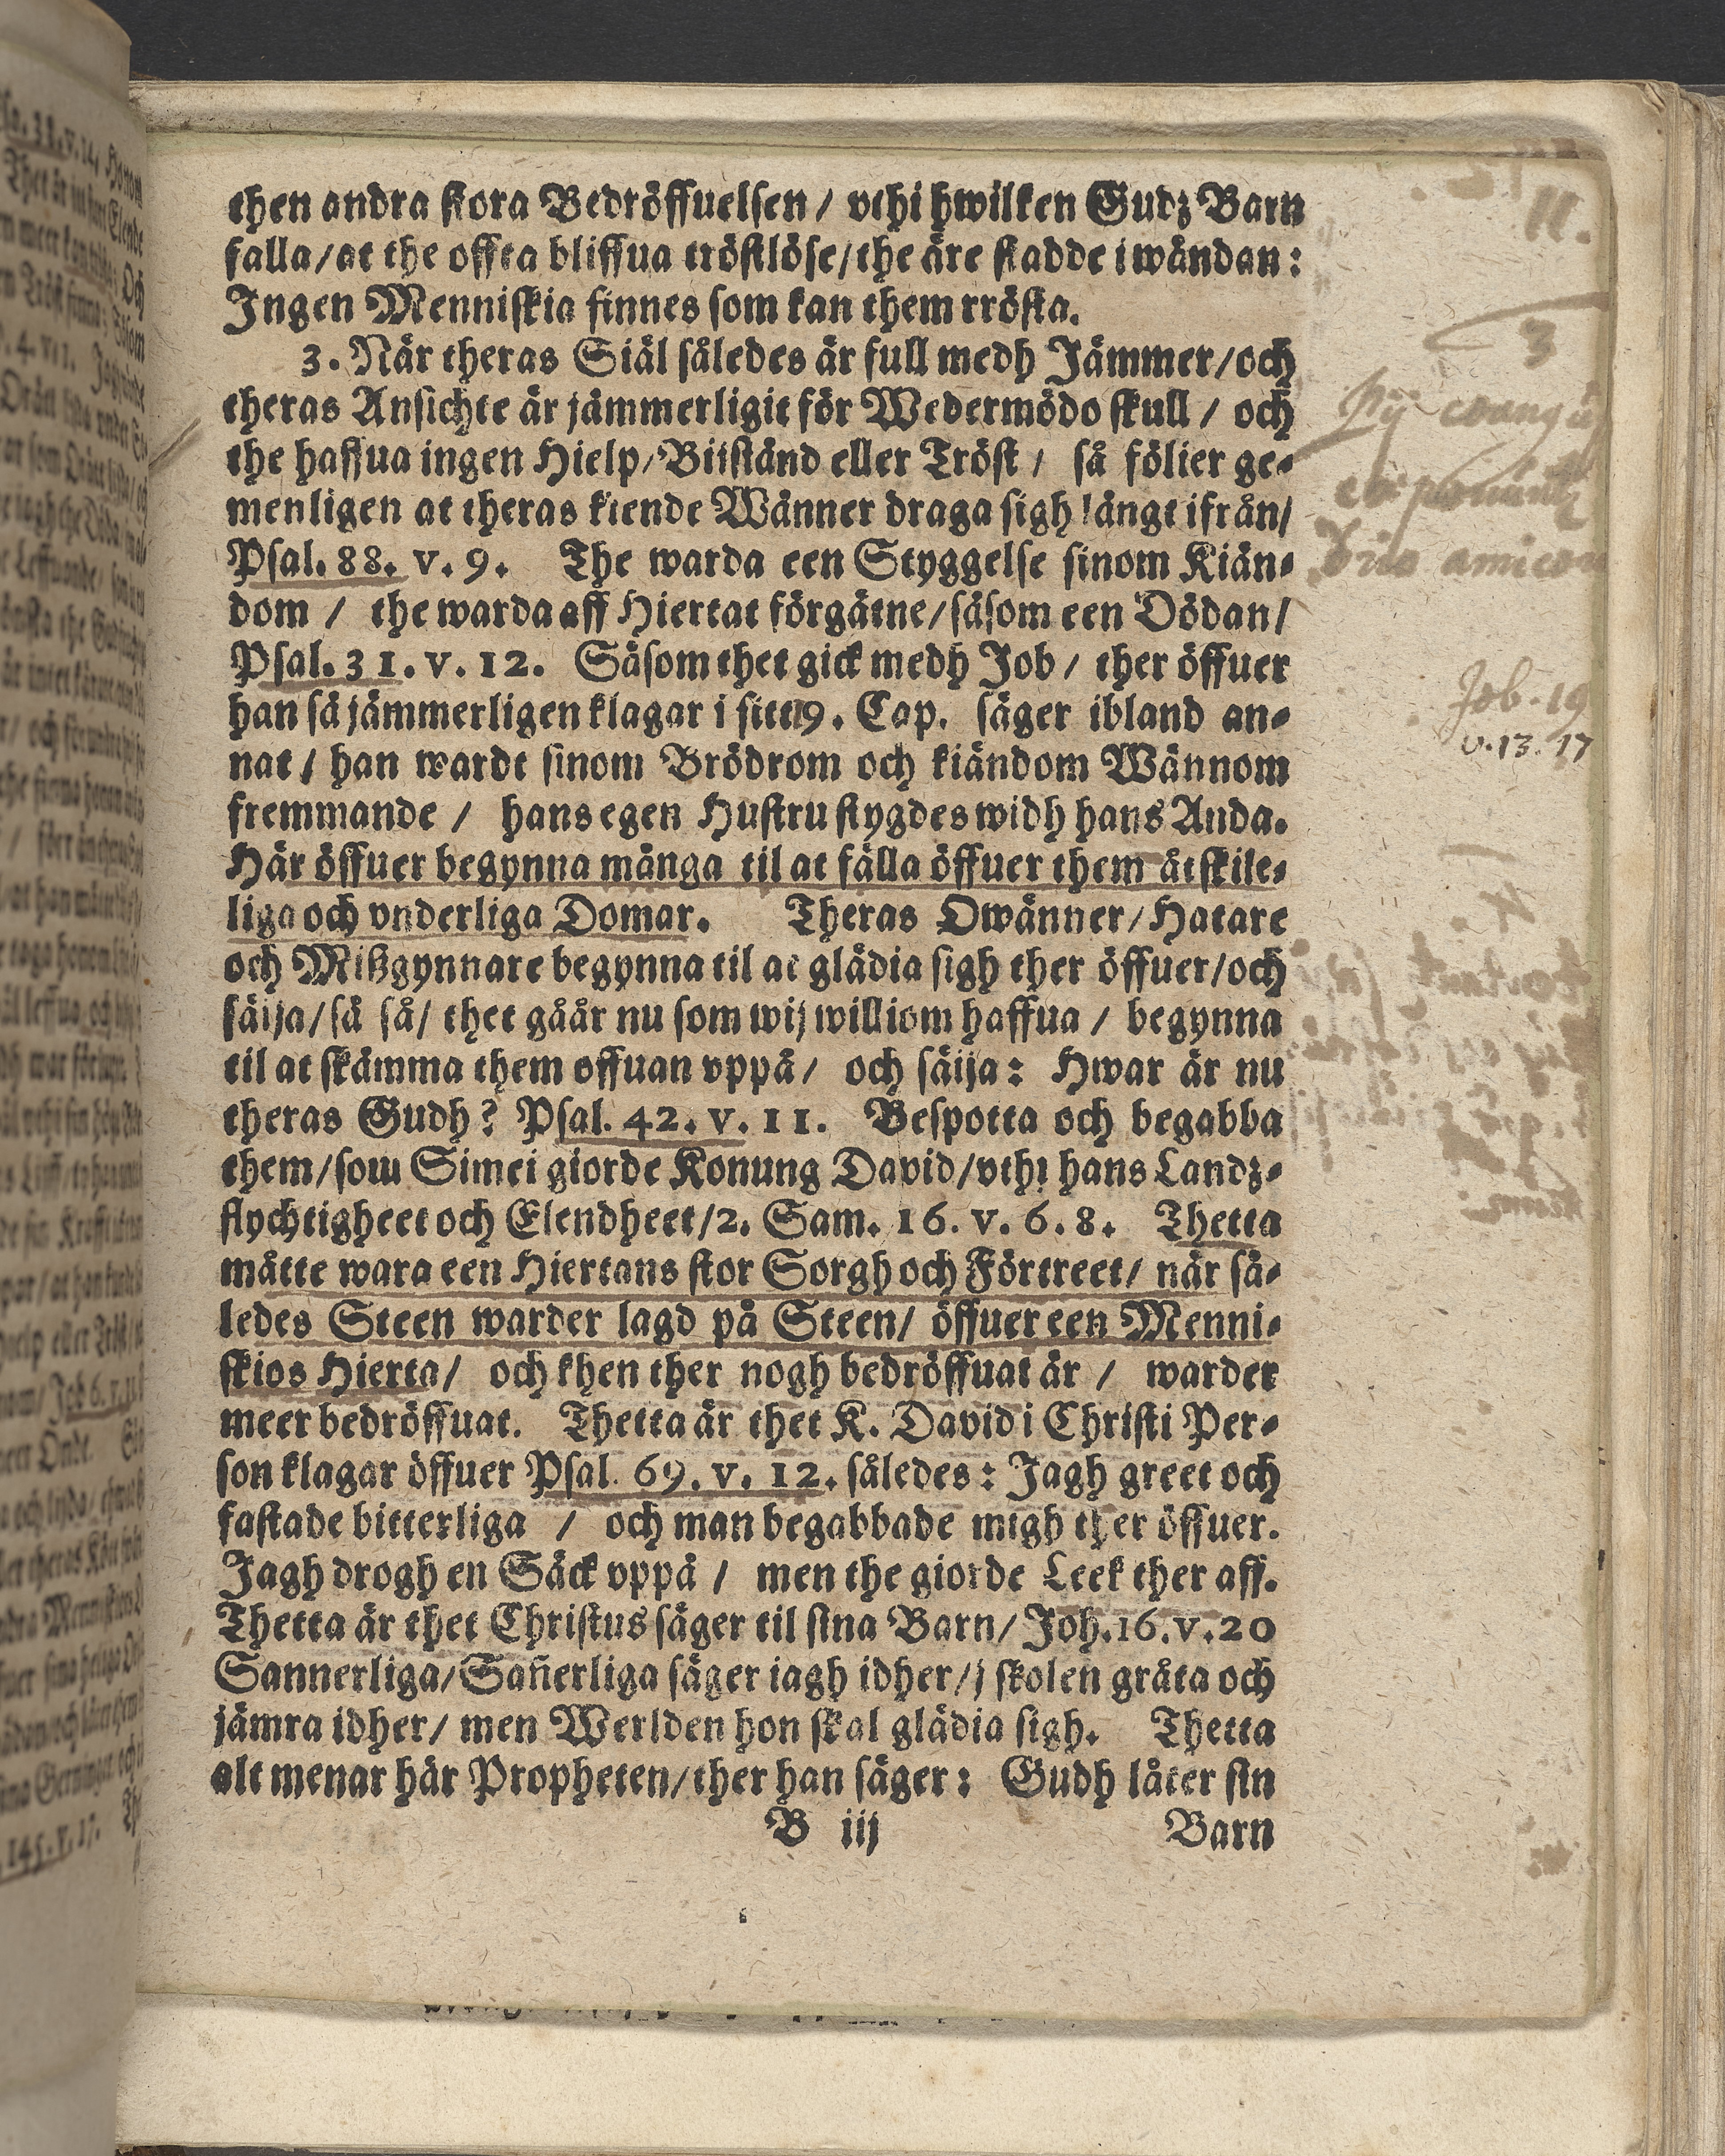 then andra stora Bedröffuelsen / vthi hwilken Gudz Barn
falla/at the offta bliffua tröstlöse/the äre stadde i wåndan:
Ingen Menniskia finnes som kan them rrösta.
3. När theras Siäl således är full medh Jämmer/och
theras Ansichte är jämmerligit för Wedermödo skull / och
the haffua ingen Hielp/Biistånd eller Tröst / så fölier ge-
menligen at theras kiende Wänner draga sigh långt ifrån/
Psal. 88. v. 9. The warda een Styggelse sinom Kiän-
dom / the warda aff Hiertat förgätne/såsom een Dödan/
Psal. 31. v. 12. Såsom thet gick medh Job / ther öffuer
han så jämmerligen klagar i sitt 19. Cap. säger ibland an-
nat / han wardt sinom Brödrom och kiändom Wännom
fremmande / hans egen Hustru stygdes widh hans Anda.
Här öffuer begynna många til at fälla öffuer them åtskile-
liga och vnderliga Domar. Theras Owänner/Hatare
och Mißgynnare begynna til at glädia sigh ther öffuer/och
säija/så så/ thet gåår nu som wij williom haffua / begynna
til at skämma them offuan vppå/ och säija: Hwar är nu
theras Gudh? Psal. 42. v. 11. Bespotta och begabba
them/som Simei giorde Konung David/vthi hans Landz-
flychtigheet och Elendheet/2. Sam. 16. v. 6. 8. Thetta
måtte wara een Hiertans stor Sorgh och Förtreet/ när så-
ledes Steen warder lagd på Steen/ öffuer een Menni-
skios Hierta/ och then ther nogh bedröffuat är / warder
meer bedröffuat. Thetta är thet K. David i Christi Per-
son klagar öffuer Psal. 69. v. 12. således: Jagh greet och
fastade bitterliga / och man begabbade migh ther öffuer.
Jagh drogh en Säck vppå / men the giorde Leek ther aff.
Thetta är thet Christus säger til sina Barn/ Joh. 16. v. 20
Sannerliga/Sañerliga säger iagh idher/j skolen gråta och
jämra idher/ men Werlden hon skal glädia sigh. Thetta
alt menar här Propheten/ther han säger: Gudh låter sin
B iij Barn
11.
3
Job. 19
v. 13. 17